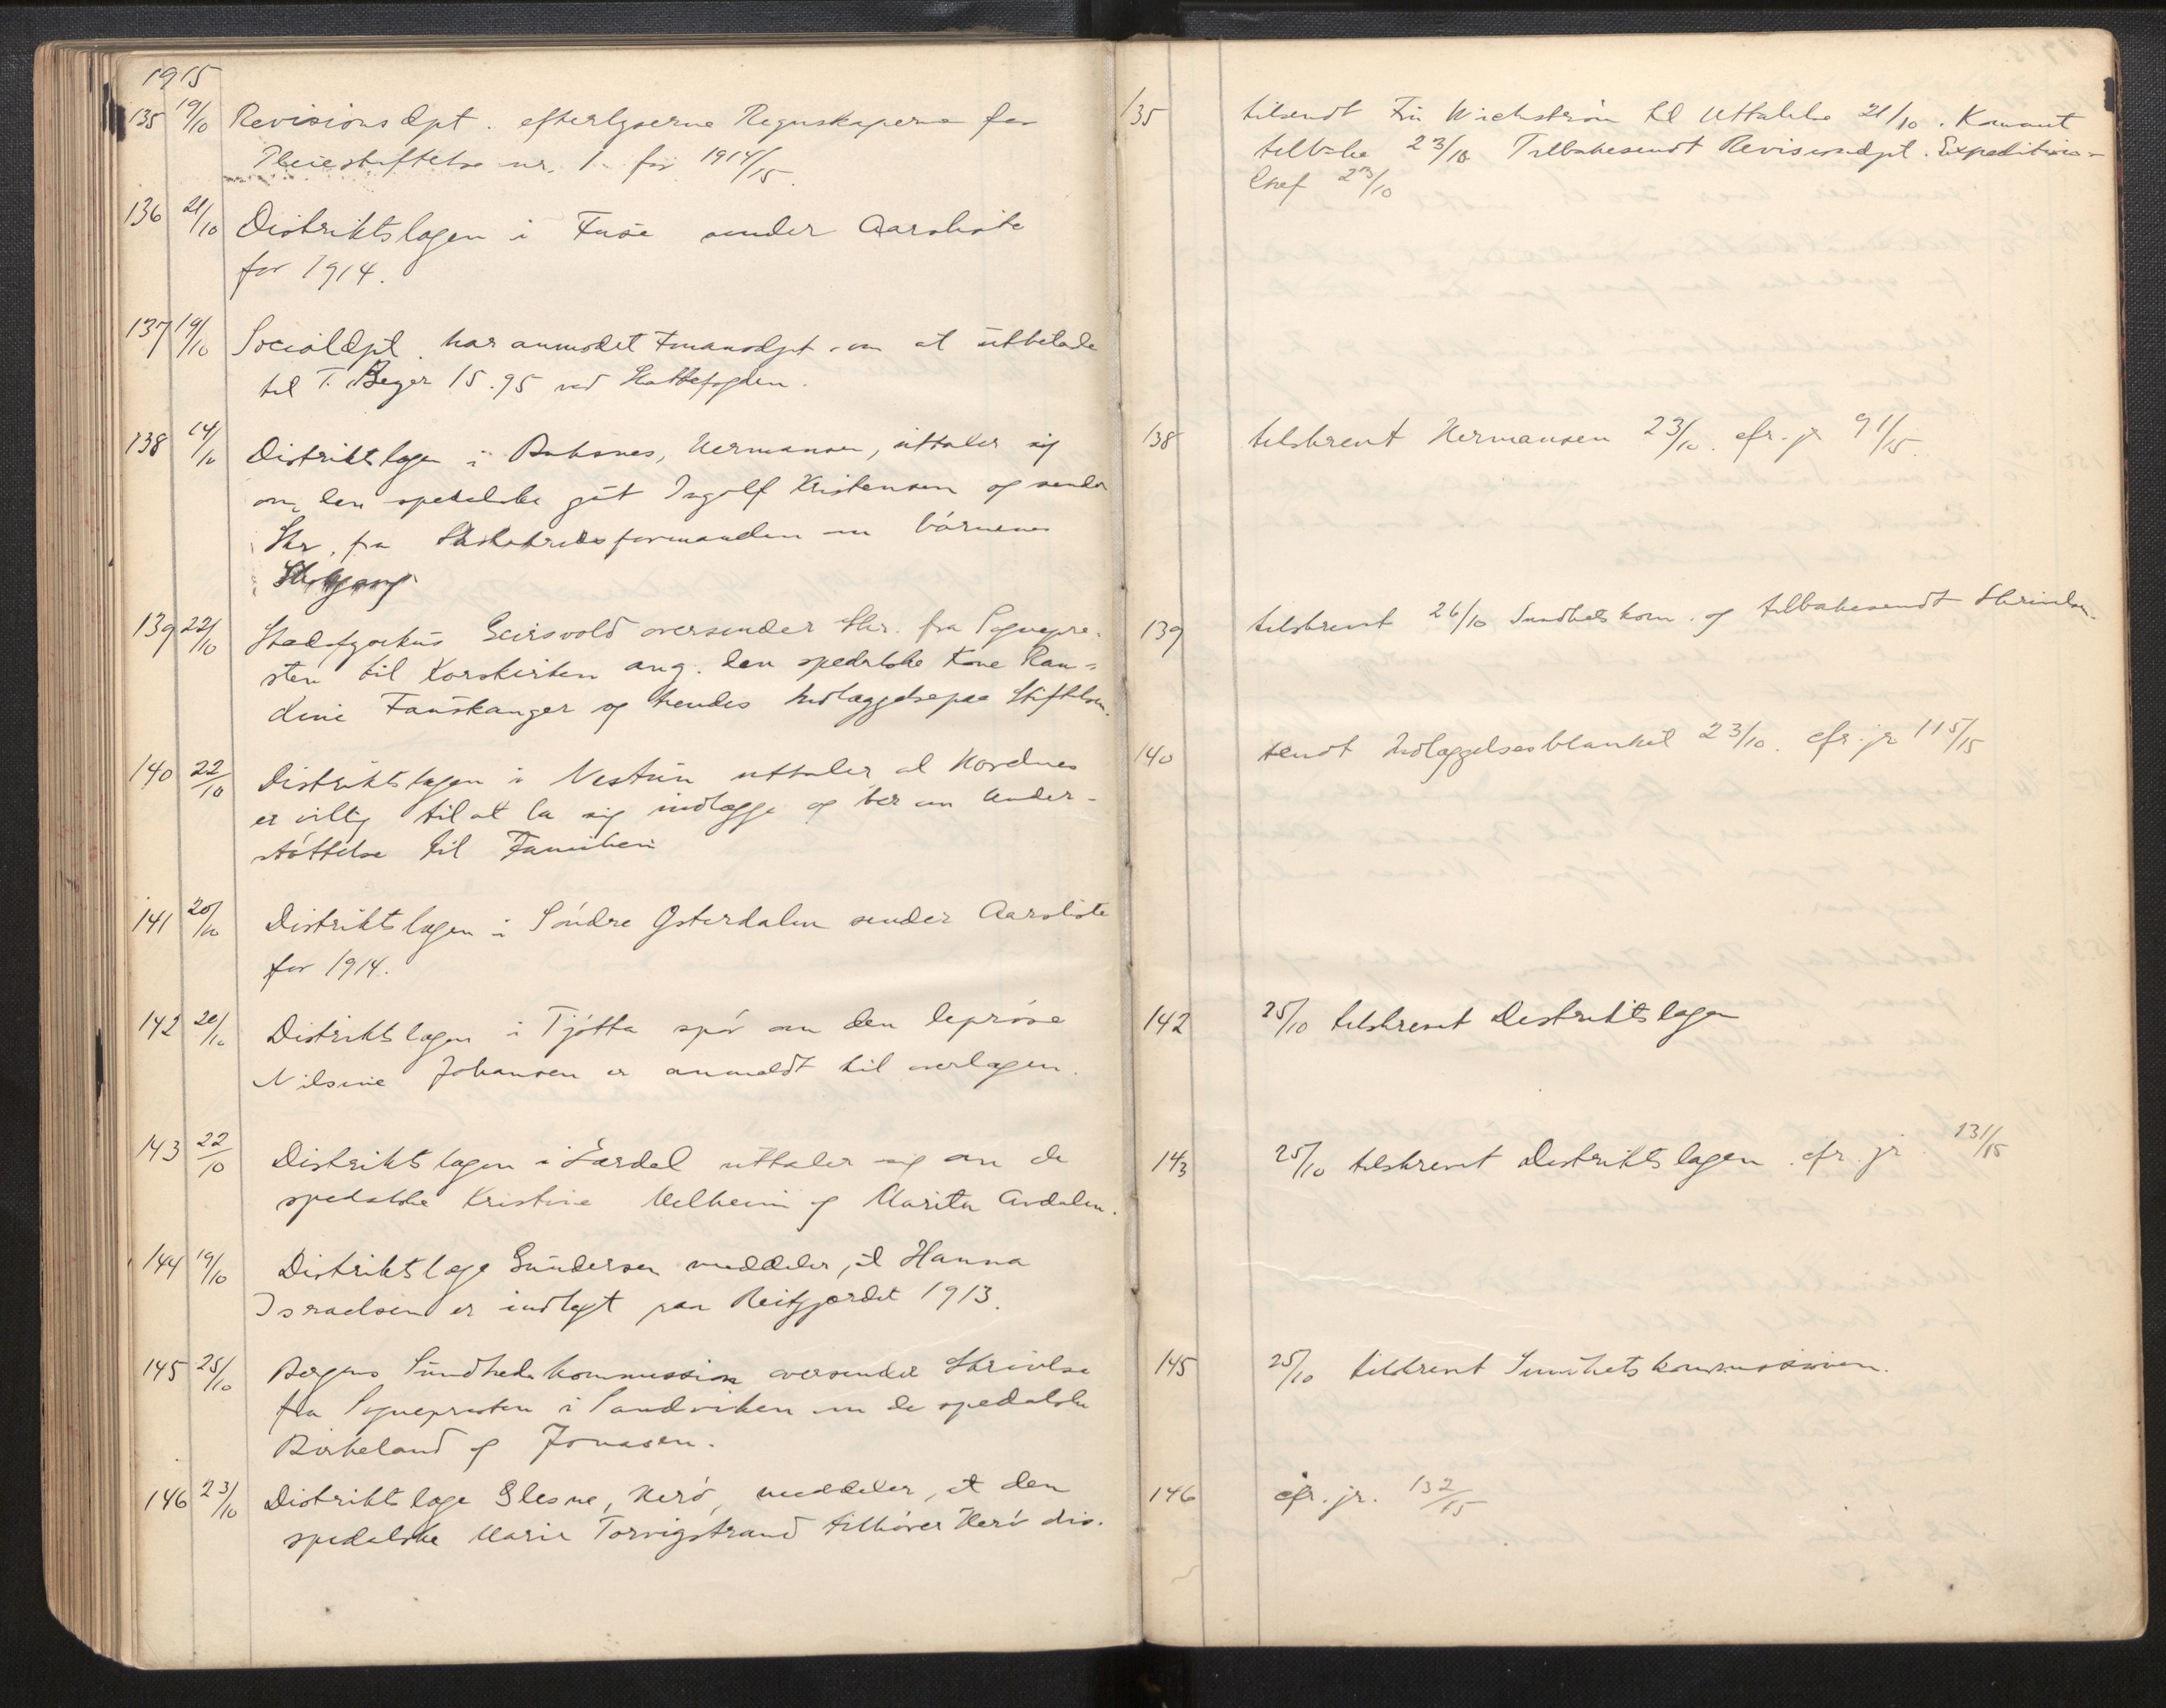 1915
135 19/10 Revisionsdpt. efterlyserne Regnskaperne for
Pleiestiftelse nr. 1 for 1914/15.
136 21/10 Distriktslægen i Fuse sender Aarsliste
for 1914.
137 19/10 Socialdpt. har anmodet Finansdpt. om at utbetale
til T. Beyer 15.95 ved Skattefogden.
138 14/10 Distriktslægen i Buksnes, Hermansen, uttaler sig
om den spedalske gut Ingolf Kristensen og sender
Skr. fra formanden om börnenes
Skolegang
139 22/10 Stadsfysikus Geirsvold oversender Skr. fra Sognepre-
sten til Korskirken ang. den spedalske Kone Ran-
dine Fauskanger og hendes Indlæggelse paa Stiftelsen.
140 22/10 Distriktslægen i Nestun uttaler at Hordnes
er villig til at la sig indlægge og ber om Under-
støttelse til Familien
141 20/10 Distriktslægen i Söndre Østerdalen sender Aarsliste
for 1914.
142 20/10 Distriktslægen i Tjötta spör om den lepröse
Nilsine Johansen er anmeldt til overlægen.
143 22/10 Distriktslægen i Lærdal uttaler sig om de
spedalske Kristine Melheim og Marita Avdalen.
144 19/10 Distriktslæge Gundersen meddeler, at Hanna
Israelsen er indlagt paa Reitgjerdet 1913.
145 25/10 Bergens Sundhedskommission oversender Skrivelse
fra Sognepresten i Sandviken om de spedalske
Birkeland og Jonasen.
146 23/10 Distriktslæge Glesne, Herö, meddeler, at den
spedalske Marie Torvigstrand tilhörer Herö dis.
135 tilsendt Fru Wickström til Uttalelse 21/10. Kommet
tilbake 23/10 Tilbakesendt Revisionsdpt. Expeditions-
chef 23/10
138 tilskrevet Hermansen 23/10. cfr. jr 91/15.
139 tilskrevet 26/10 Sundhetskom. og tilbakesendt Skrivelsen.
140 sendt Indlæggelsesblanket 23/10. cfr. jr 115/15
142 25/10 tilskrevet Distriktslægen
143 25/10 tilskrevet Distriktslægen. cfr. jr 131/15
145 25/10 tilskrevet Sundhetskommissionen.
146 cfr. jr. 132/15